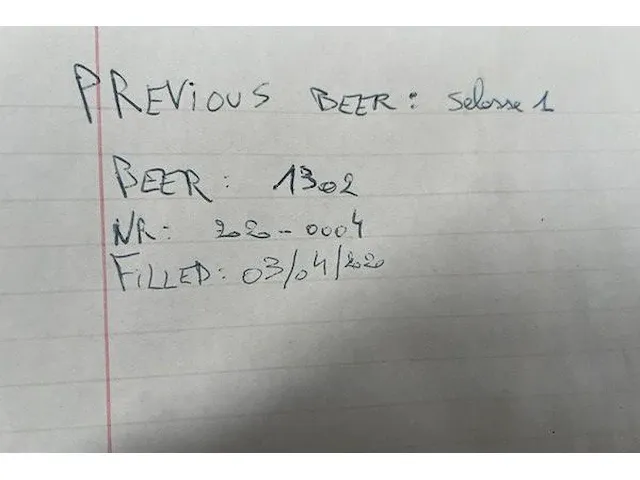 PREVIOUS BEER: Selosse 1
BEER: 1302
NR: 2020-0004
FILLED: 03/04/2020